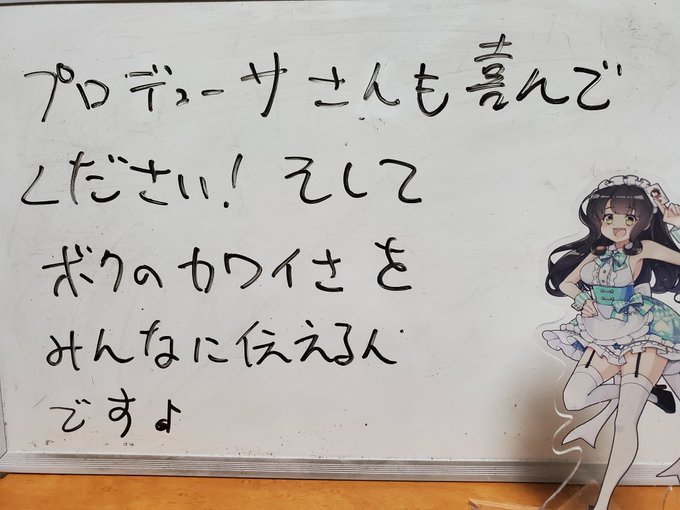 プロデューサさんも喜んで
ください！そして
ボクのカワイさを
みんなに伝えるん
ですよ